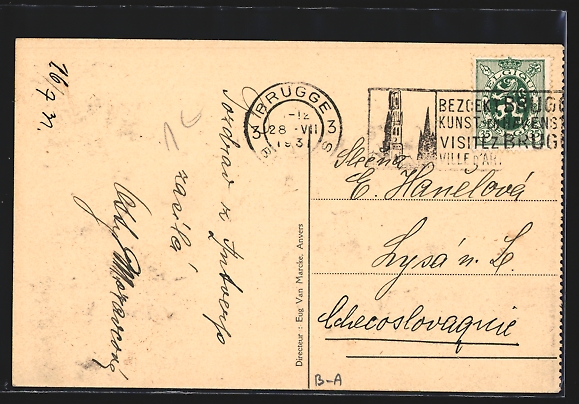 16/7 31.
Pozdrav z Antverp
zasílá
BRUGGE
3 3
-12
28 -VII
1931
BEZOEKT BRUGG
KUNST-
VISITEZ BRUG
VILLE D'AR
BELGIQUE
35 35
Slečna
E. Hanelová
Lysá n. L.
Tchecoslovaquie
Directeur : Eug Van Marcke, Anvers
B-A